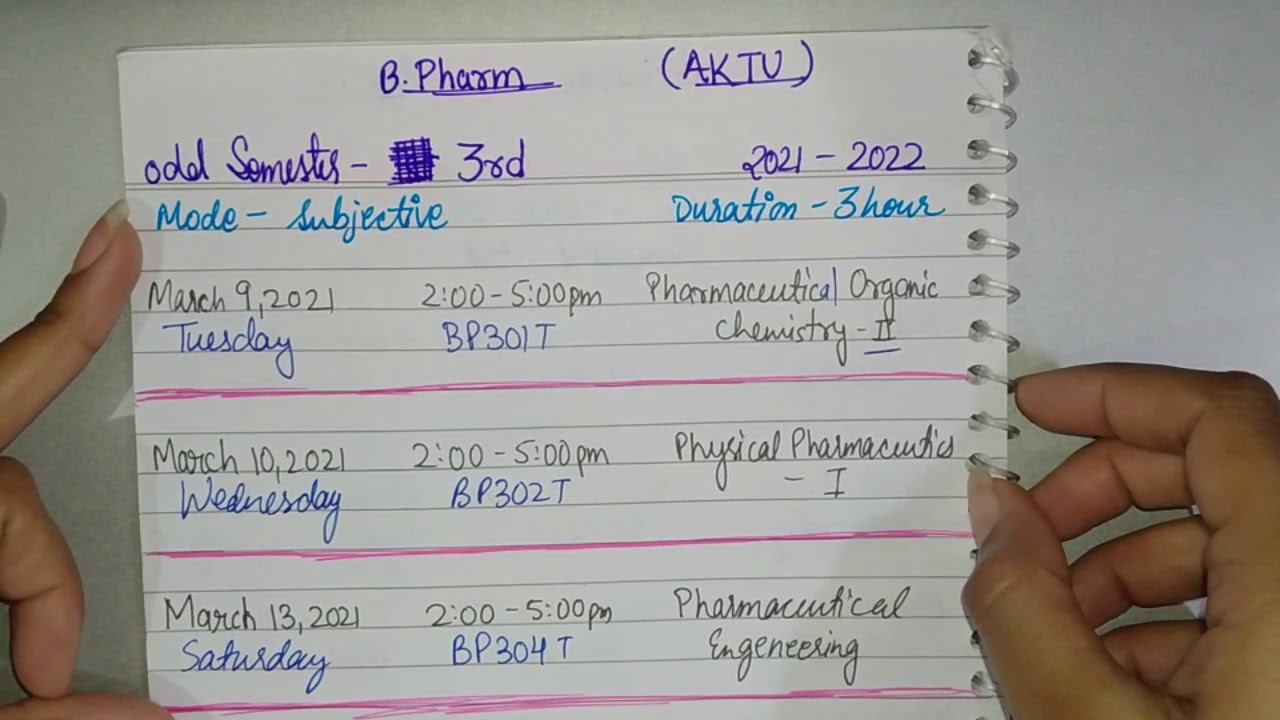 B. Pharm (AKTU)
odd Semester - 3rd 2021 - 2022
Mode - Subjective Duration - 3 hour
March 9, 2021 2:00 - 5:00 pm Pharmaceutical Organic
Tuesday BP301T Chemistry - II
March 10, 2021 2:00 - 5:00 pm Physical Pharmaceutics
Wednesday BP302T - I
March 13, 2021 2:00 - 5:00 pm Pharmaceutical
Saturday BP304T Engeneering